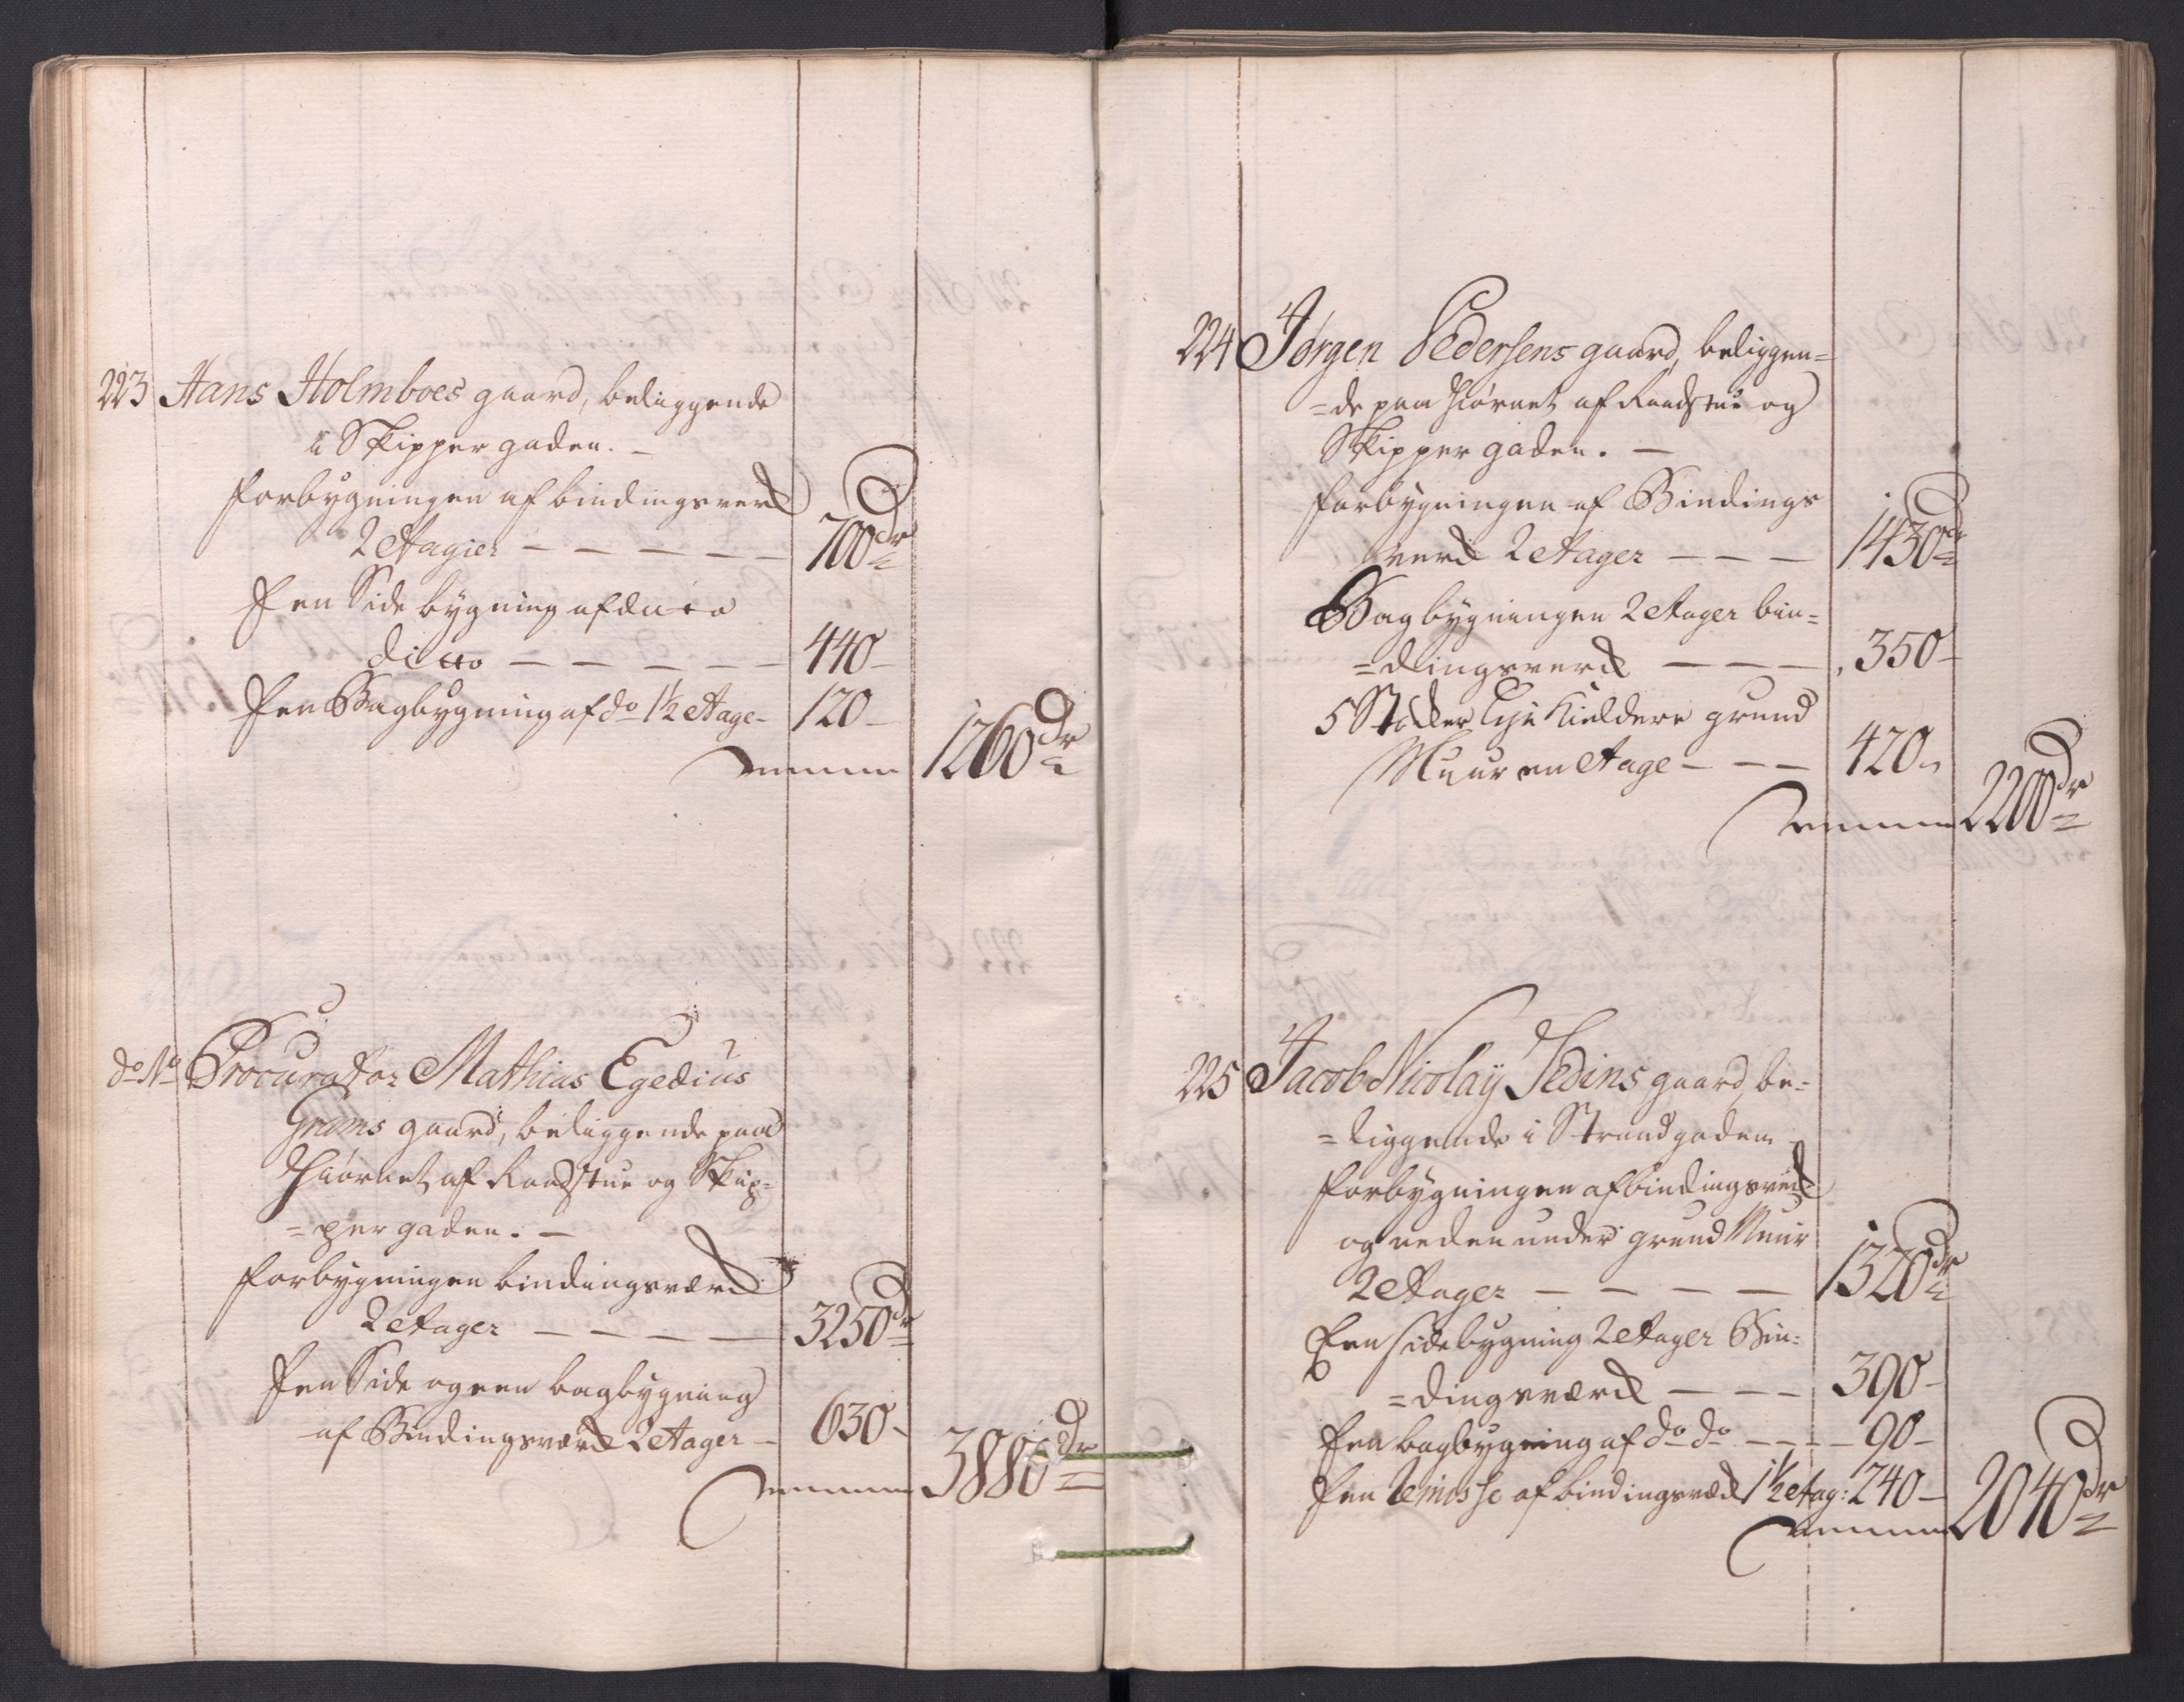 223 Hans Holmboes gaard, beliggende
i Skipper gaden. –
forbygningen af bindingsverk
2 Etagier – – – – – 700 dr
Een Side bygning af ditto
ditto – – – – – 440 –
Een Bagbygning af do 1½ Etage – 120 –
Summa 1260 dr
do No Procurator Mathias Egedius
Grams gaard, beliggende paa
Hiørnet af Raadstue og Skip=
=per gaden. –
forbygningen bindingsværk
2 Etager – – – – 3250 dr
Een Side og een bagbygning
af Bindingsværk 2 Etager – 630 –
Summa 3880 dr
224 Jørgen Pedersens gaard, beliggen=
=de paa Hiørnet af Raadstue og
Skipper gaden. –
forbygningen af Bindings
verk 2 Etager – – – 1430 dr
Bagbygningen 2 Etager bin=
=dingsverk – – – 350 –
5 Stokker Kieldere grund
Muur en Etage – – – 420 –
Summa 2200 dr
225 Jacob Nicolaÿ Jedins gaard, be=
=liggende i Strandgaden
forbygningen af bindingsverk
og neden under grund Muur
2 Etager – – – – 1320 dr
Een sidebygning 2 Etager Bin=
=dingsværk – – – 390 –
Een bagbygning af do do – – – – 90 –
Een Remisse af bindingsværk 1½ Etag: 240 –
Summa 2040 dr